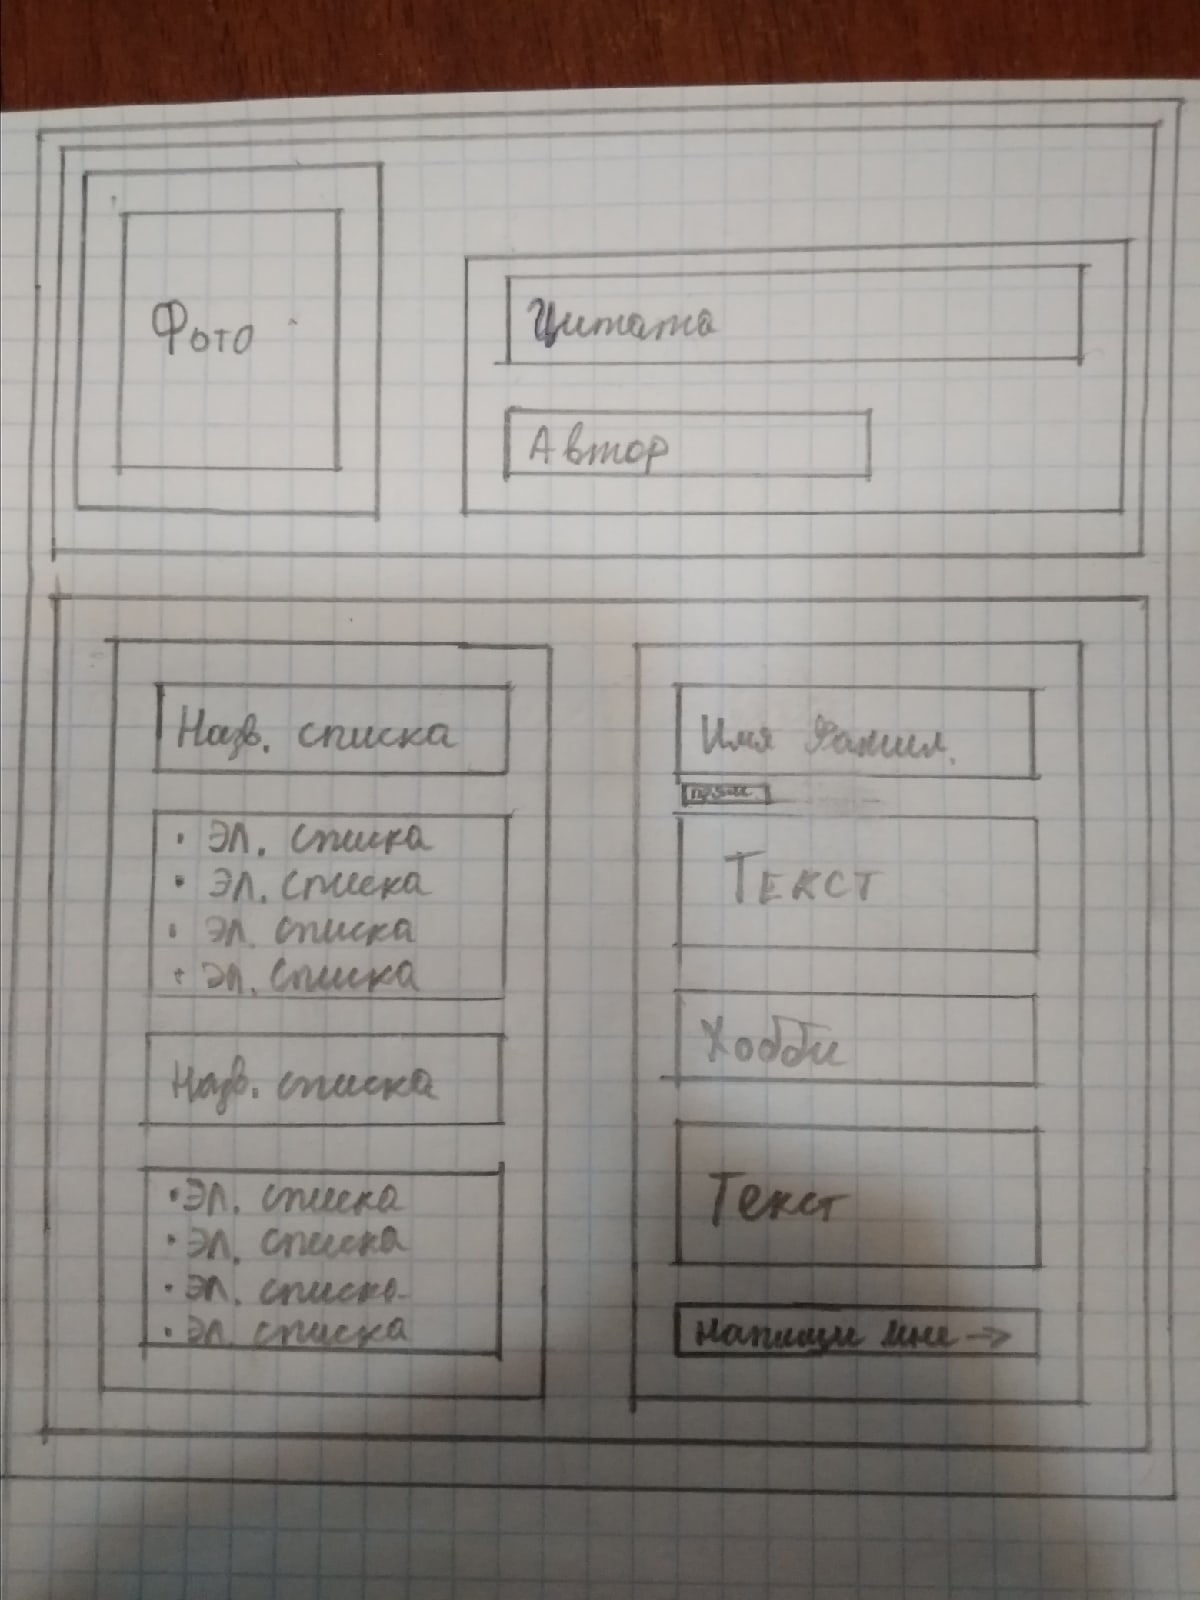 Фото
Цитата
Автор
Назв. списка
• Эл. списка
• Эл. списка
• Эл. списка
• Эл. списка
Назв. списка
• Эл. списка
• Эл. списка
• Эл. списка
• Эл. списка
Имя Фамил.
Текст
Хобби
Текст
Напиши мне →